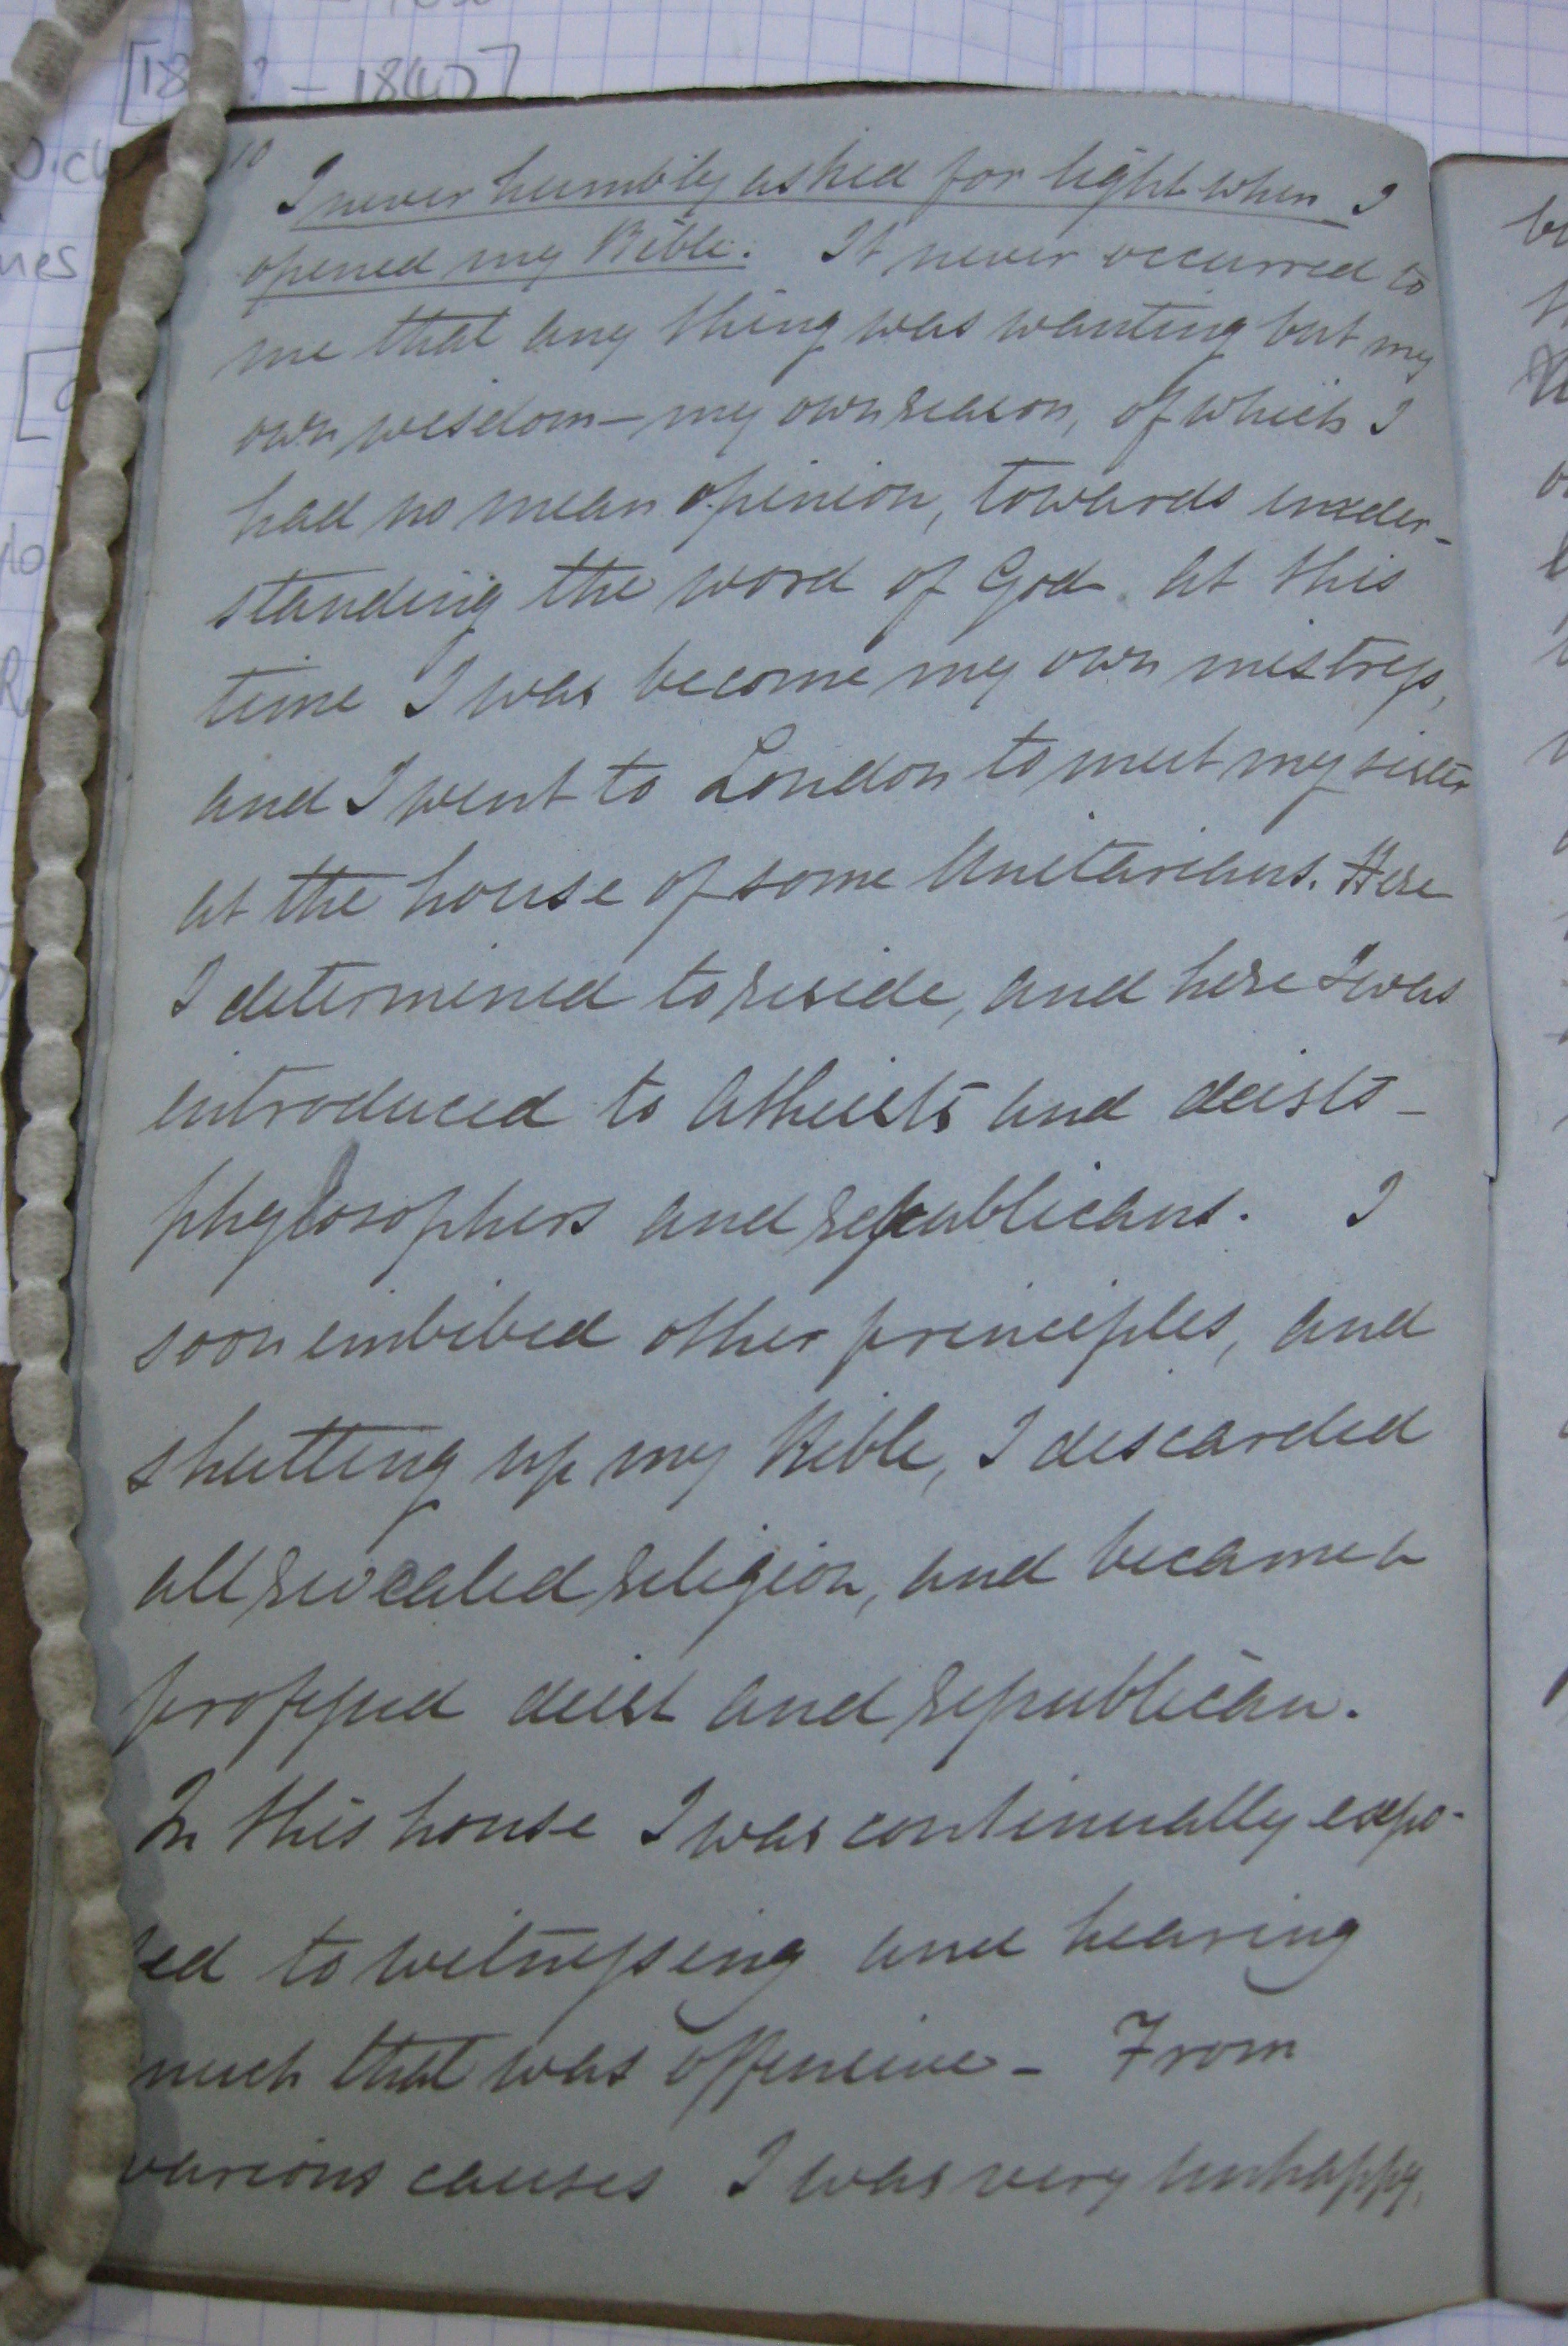 10
I never humbly asked for light when I
opened my Bible. It never occurred to
me that any thing was wanting but my
own wisdom – my own reason, of which I
had no mean opinion, towards under-
standing the word of God. At this
time I was become my own mistress,
and I went to London to meet my sister
at the house of some Unitarians. Here
I determined to reside, and here I was
introduced to Atheists and deists –
phylosophers and republicans. I
soon imbibed other principles, and
shutting up my Bible, I discarded
all revealed religion, and became a
professed deist and republican.
In this house I was continually expo-
sed to witnessing and hearing
much that was offensive – From
various causes I was very unhappy,